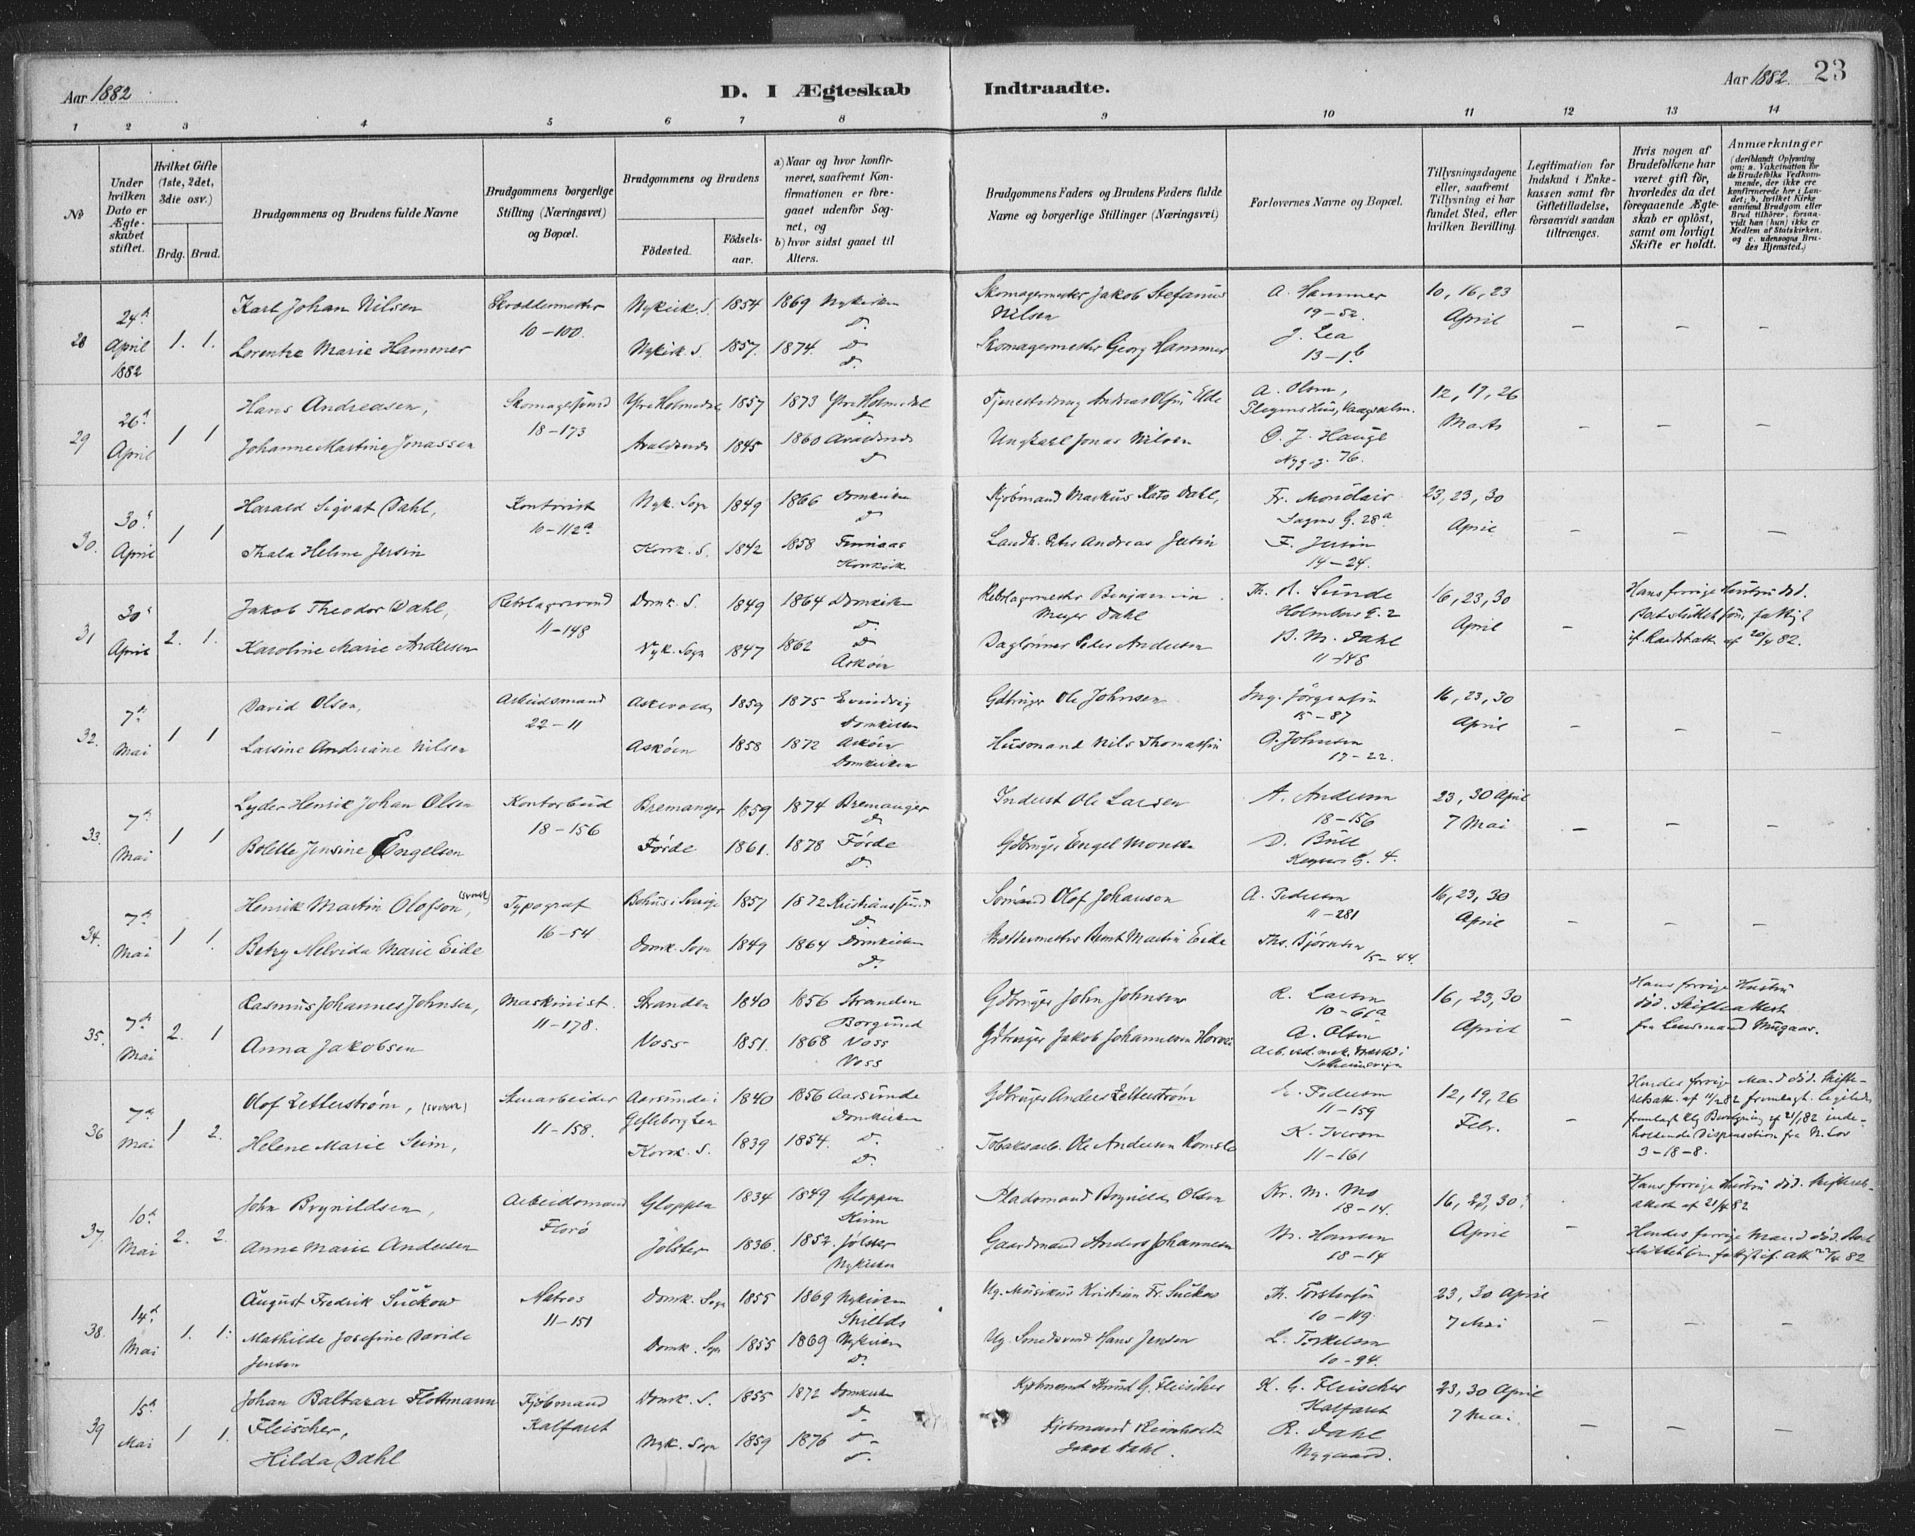 Aar 1882
D. I Ægteskab Indtraadte.
Aar 1882. 23
1 2 3 4 5 6 7 8 9 10 11 12 13 14
No
Under hvilken Dato er Ægteskabet stiftet.
Hvilket Gifte (1ste, 2det, 3die osv.)
Brdg. Brud.
Brudgommens og Brudens fulde Navne
Brudgommens borgerlige Stilling (Næringsvei) og Bopæl.
Brudgommens og Brudens
Fødested. Fødselsaar.
a) Naar og hvor konfirmeret, saafremt Konfirmationen er foregaaet udenfor Sognet, og
b) hvor sidst gaaet til Alters.
Brudgommens Faders og Brudens Faders fulde Navne og borgerlige Stillinger (Næringsvei)
Forlovernes Navne og Bopæl.
Tillysningsdagene eller, saafremt Tillysning ei har fundet Sted, efter hvilken Bevilling.
Legitimation for Indskud i Enkekassen samt for Giftetilladelse, forsaavidt saadan tiltrænges.
Hvis nogen af Brudefolkene har været gift før, hvorledes da det foregaaende Ægteskab er opløst, samt om lovligt Skifte er holdt.
Anmærkninger
(deriblandt Oplysning om: a. Vakcination for de Brudefolks Vedkommende, der ikke ere konfirmerede her i Landet; b. hvilket Kirkesamfund Brudgom eller Brud tilhører, forsaavidt han (hun) ikke er Medlem af Statskirken, og c. udensogns Brudes Hjemsted.)
28 24de April 1882 1. 1.
Karl Johan Nilsen
Lorentze Marie Hammer
Skræddermester
10-100.
Nykirk. S. 1854 1869 Nykirken
Nykirk. S. 1857. 1874.
Skomagermester Jakob Stefanus Nilsen
Skomagermester Georg Hammer
A. Hammer
19-52.
J. Lea
13-1b
10, 16, 23
April
29 26de April 1 1
Hans Andreasen,
Johanne Martine Jonassen
Skomagersvend
18-173
Ytre Holmedal 1857 1873 Ytre Holmedal
Avaldsnes 1845 1860 Avaldsnes
Andreas Olsen
Ungkarl Jonas Nilsen
A. Olsen,
O. J. Hauge
Nyg. g. 76.
12, 17, 26
Marts
30. 30te April 1 1
Harald Sigvat Dahl,
Thala Helene Jersin
Kontorist
10-112a
Nyk. Sogn 1849 1866 Domkirken
Korsk. S. 1842 1858 Finnaas
Korskirk.
Kjøbmand Markus Kato Dahl,
Andreas Jersin
Fr. Monclair
28a
F. Jersin
14-24.
23, 23, 30
April
31 30te April 2. 1.
Jakob Theodor Dahl,
Karoline Marie Andersen
Rebslagersvend
11-148
Domk. S. 1849 1864 Domkirken
Nyk. Sogn 1847 1862
Askøen
Rebslagermester Benjamin
Meyer Dahl
Daglønner Peder Andersen
Th. A. Sunde
Holmbos G. 2
B. M. Dahl
11-148
16, 23, 30
April
Hans forrige Hustru død.
32. 7de Mai 1 1
David Olsen,
Larsine Andriane Nilsen
Arbeidsmand
22-11
Askevold 1859 1875 Evindvig
Domkirken
Askøen 1858 1872 Askøen
Domkirken
Gdbruger Ole Johnsen
Husmand Nils Thomassen
Ing. Jørgensen
15-87
O. Johnsen
17-22.
16, 23, 30
April
33. 7de Mai 1 1
Lyder Henrik Johan Olsen
Bolette Jensine Engelsen
Kontorbud
18-156
Bremanger 1859 1874 Bremanger
Førde 1861. 1878 Førde
Inderst Ole Larsen
Gdbruger Engel Monsen
A. Andersen
18-156
D. Bull
4.
23, 30 April
7 Mai
34. 7de Mai 1 1.
Henrik Martin Olofson, (svensk)
Betzy Melvida Marie Eide
Typograf
16-54
Bohus i Sverige 1857 1872 Kristianssund
Domk. Sogn 1849 1864 Domkirken
Sømand Olof Johanson
Martin Eide
A. Pedersen
11-281
Ths. Bjørnsen
15-44.
16, 23, 30
April
35. 7de Mai 2. 1
Rasmus Johannes Johnsen,
Anna Jakobsen
Maskinist.
11-178.
Stranden 1840 1856 Stranden
Borgund
Voss 1851. 1868 Voss
Voss
Gdbruger John Johnsen
Gdbruger Jakob Johannesen
R. Larsen
10-61a
A. Olsen
16, 23, 30
April
Hans forrige Hustru
død. Skifteattest
fra Lensmand Mugaas.
36 7de Mai 1 2.
Olof Zetterstrøm, (svensk)
Helene Marie Seim,
Stenarbeider
11-158.
Aarsunde i
Gefleborg Len 1840 1856 Aarsunde
Domkirken
Korsk. S. 1839 1854.
Gdbruger Anders Zetterstrøm
Tobaksarb. Ole Andersen
E. Pedersen
11-159
K. Iversen
11-161
12, 19, 26
Febr.
Hendes forrige Mand død. Skifte-
3-18-8.
37. 10de Mai 2. 2.
John Brynildsen,
Anne Marie Andersen
Arbeidsmand
Florø
Gloppen 1834 1849 Gloppen
Kinn
Jølster 1836. 1852. Jølster
Nykirken
Brynild Olsen
Gaardmand Anders Johannesen
Kr. M. Mo
18-14.
M. Hansen
18-14
16, 23, 30
April
Hans forrige Hustru død.
Hendes forrige Mand død.
38. 14de Mai 1. 1.
August Fredrik Suckow
Mathilde Josefine Davide
Jensen
Matros
11-151
Domk. Sogn 1855 1869 Nykirken
Domk. Sogn 1855 1869 Nykirken
Ug. Musikus Kristian Fr. Suckow
Ug. Smedsvend Hans Jensen
Th. Torstensen
10-119.
L. Torkelsen
10-94.
23, 30 April
7 Mai
39 15de Mai 1 1.
Johan Baltazar Flottmann
Fleischer,
Hilda Dahl
Kjøbmand
Kalfaret
Domk. S. 1855 1872 Domkirken
Nyk. Sogn 1859 1876
Kjøbmand Knud G. Fleischer
Kjøbmand Reinholdt
Jakob Dahl.
K. G. Fleischer
Kalfaret
R. Dahl
Nygaard.
23, 30 April
7 Mai.